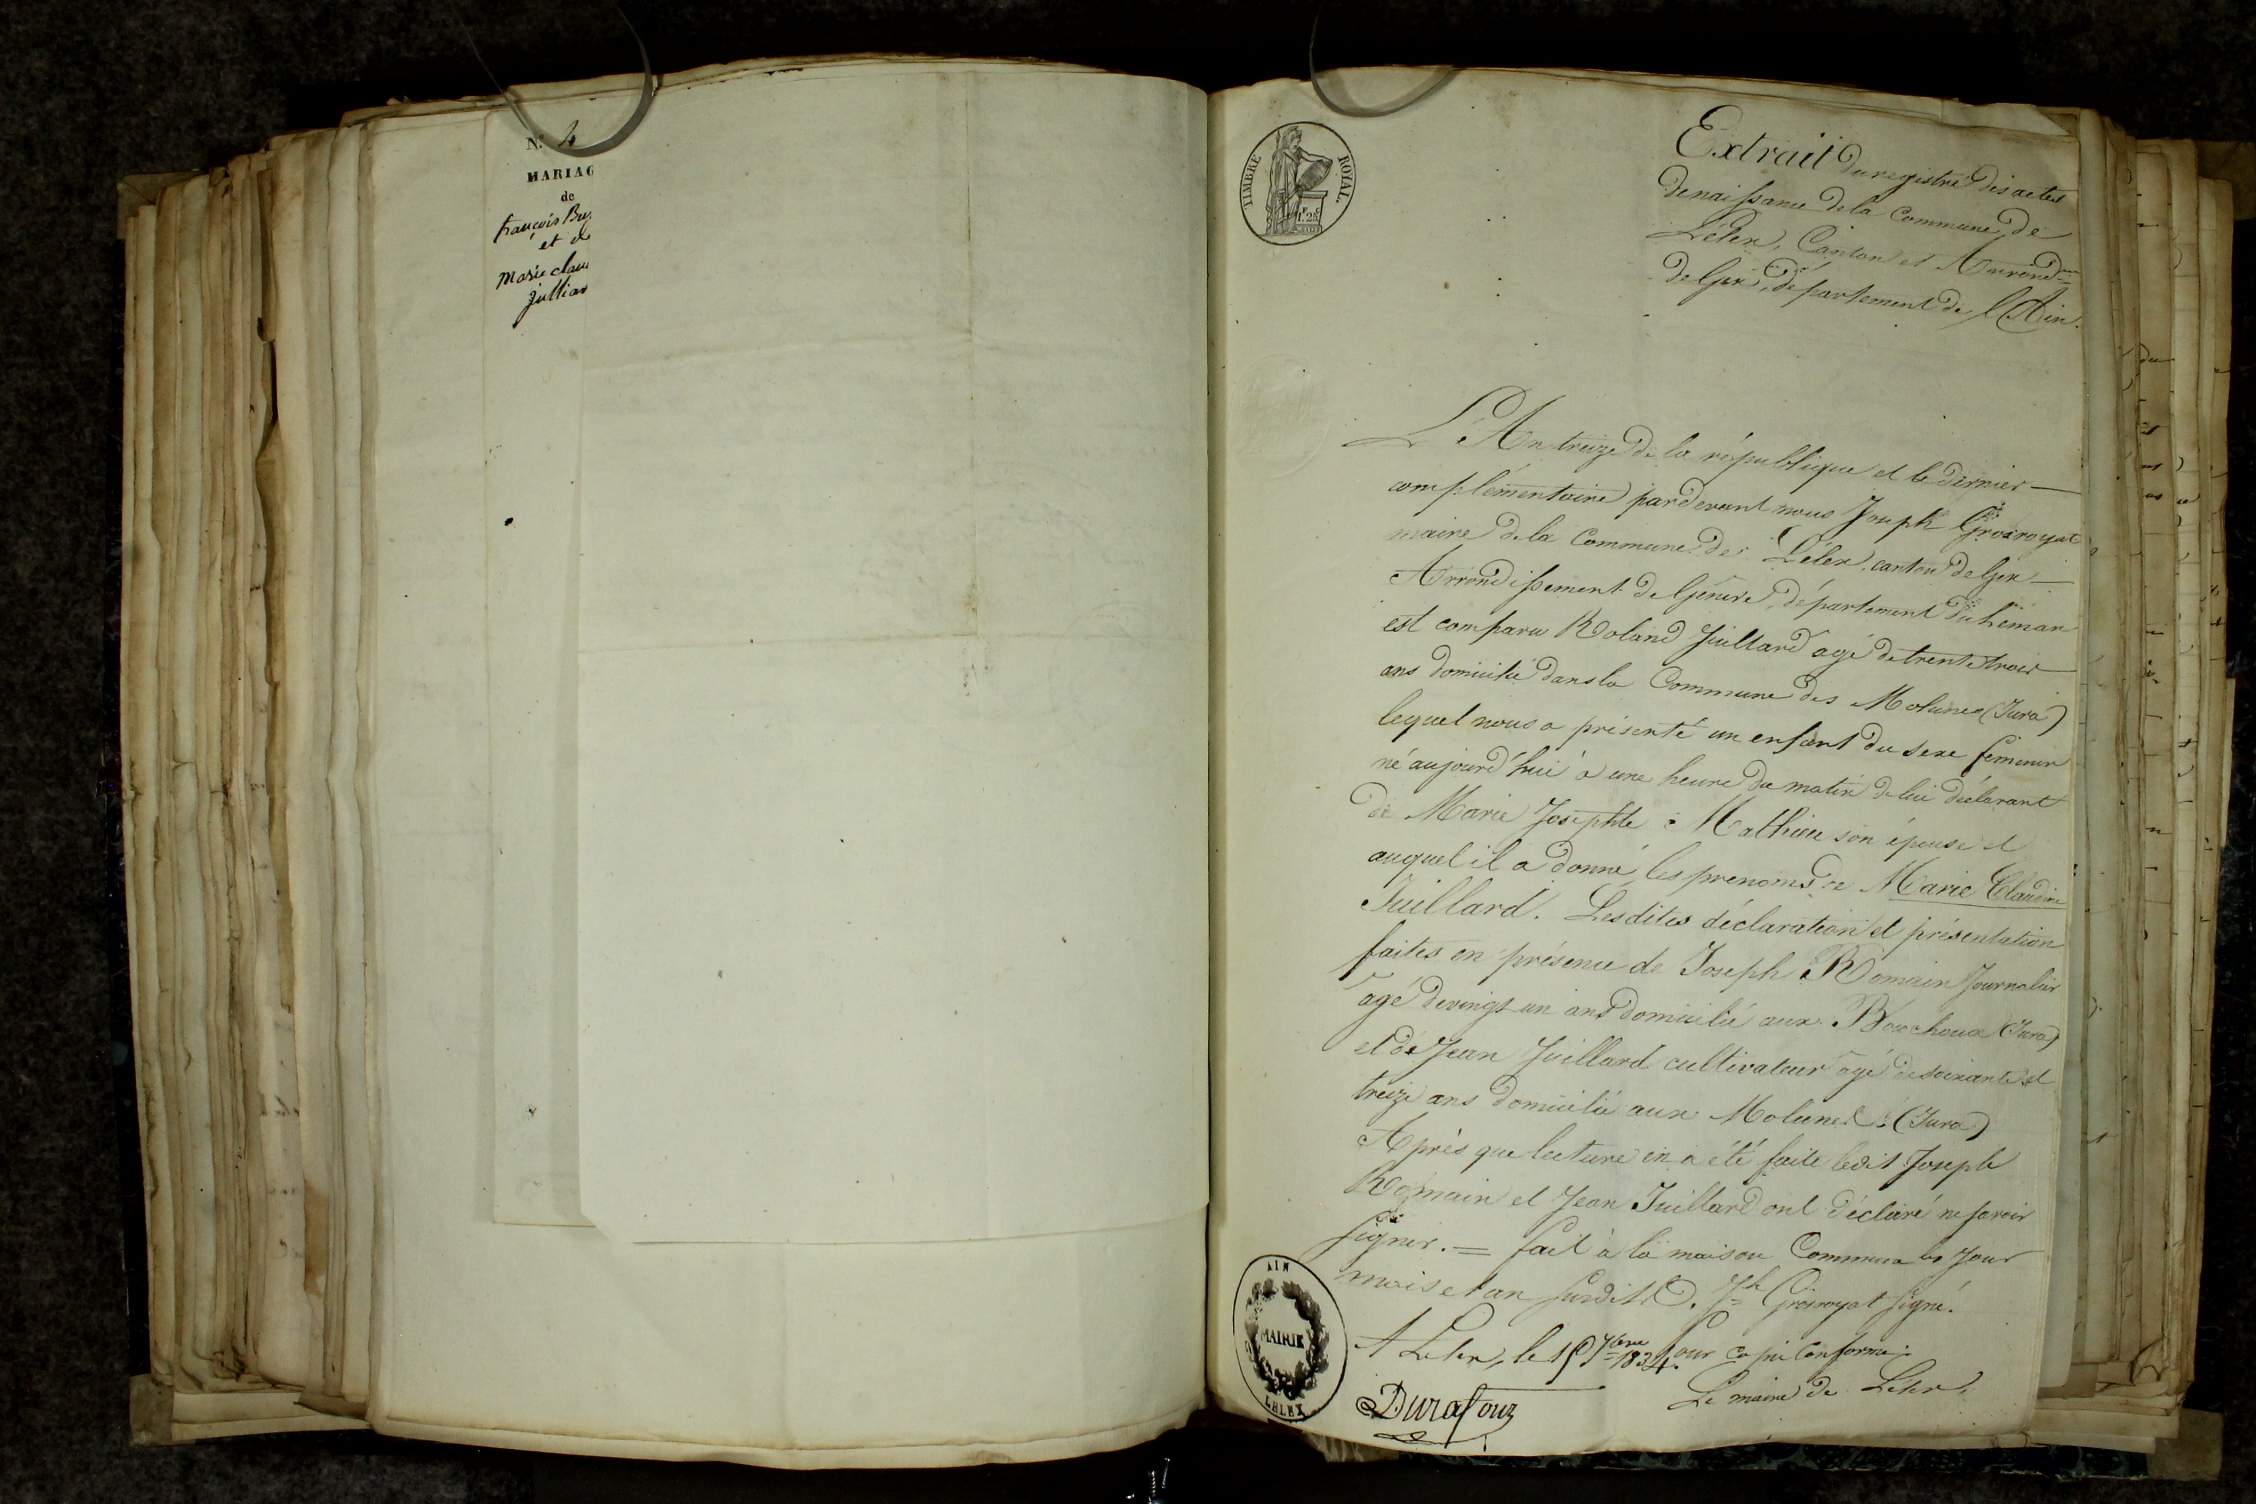 N.° 4
MARIAG
de
françois Bu
et d
Marie clau
Juillar
TIMBRE ROYAL.
1.F 25C
Extrait du registre des actes
de naissance de la Commune de
Lélex, Canton et Arrond.
de Gex, département de l'Ain.
L'An treize de la république et le dernier
complémentaire pardevant nous Joseph Grosroyat
maire de la Commune de Lélex, canton de Gex
Arrondissement de Genève, département du Léman
est comparu Roland Juillard agé de trente trois
ans domicilié dans la Commune des Molunes (Jura)
lequel nous a présenté un enfant du sexe féminin
né aujourd'hui à une heure du matin de lui déclarant
de Marie Josephte Mathieu son épouse et
auquel il a donné les prenoms de Marie Claudine
Juillard. Lesdites déclaration et présentation
faites en présence de Joseph Romain Journalier
agé de vingt un ans domicilié aux Bouchoux (Jura)
et de Jean Juillard cultivateur agé de soixante et
treize ans domicilié aux Molunes (Jura)
Après que lecture en a été faite ledit Joseph
Romain et Jean Juillard ont déclaré ne savoir
signer. = fait à la maison Commune les Jour
mois et an susdit. Jh Grosroyat signé.
Pour copie conforme.
A Lélex, le 15 7bre 1834.
Le maire de Lélex,
Durafour
AIN
MAIRIE
LELEX